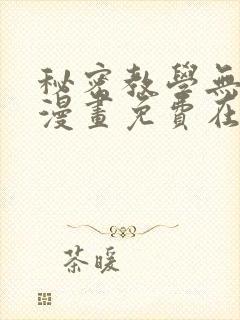 秘密教學無
漫畫免費在
茶暖